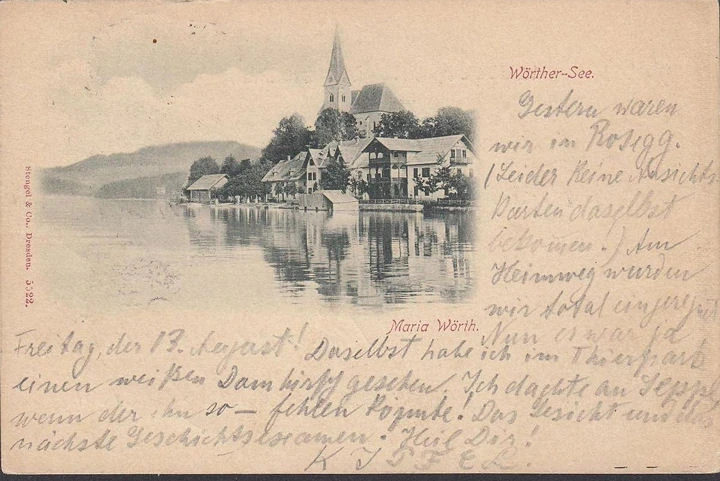 Wörther-See.
Gestern waren
wir in Rosegg.
(Leider keine Ansichts
Karten daselbst
bekommen.) Am
Heimweg wurden
wir total eingeregnet.
Maria Wörth.
Nun es war ja
Freitag, der 13. August! Daselbst habe ich im Thierpark
einen weißen Damhirsch gesehen. Ich dachte an Seppl
wenn der ihn so — fehlen könnte! Das Gesicht und das
nächste Geschichtsexamen. Heil Dir!
Stengel & Co., Dresden. 5522.